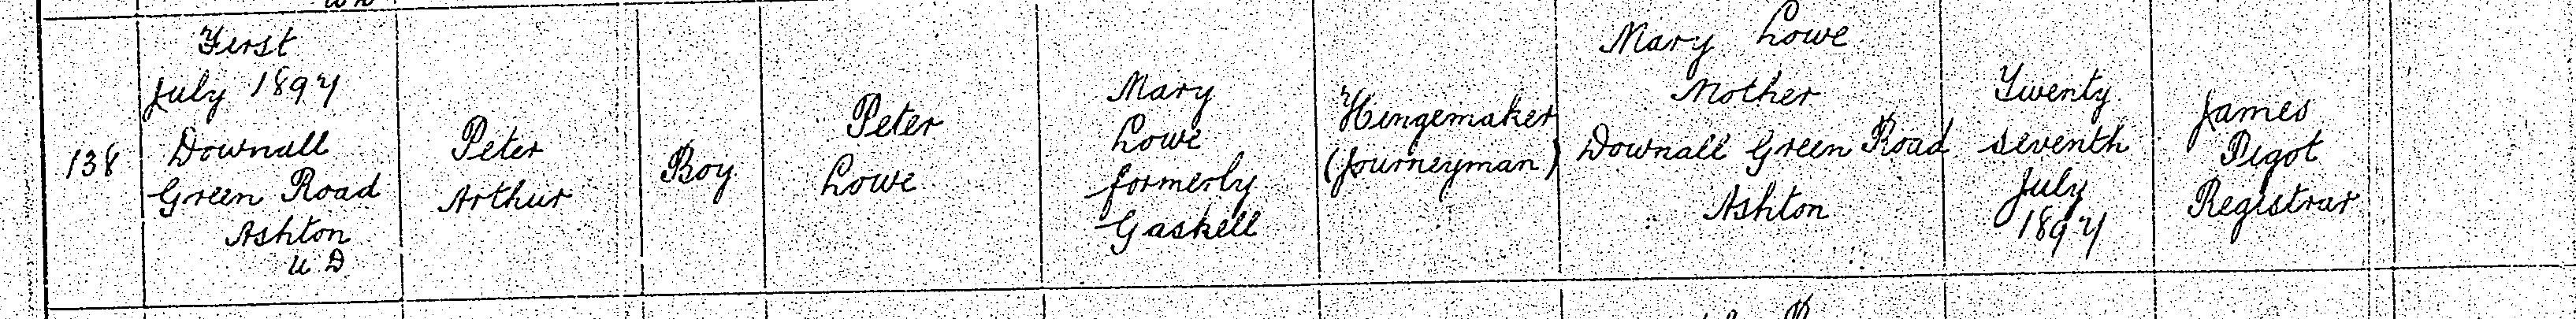 138
First
July 1897
Downall
Green Road
Ashton
U D
Peter
Arthur
Boy
Peter
Lowe
Mary
Lowe
formerly
Gaskell
Hingemaker
(Journeyman)
Mary Lowe
Mother
Downall Green Road
Ashton
Twenty
seventh
July
1897
James
Pigot
Registrar